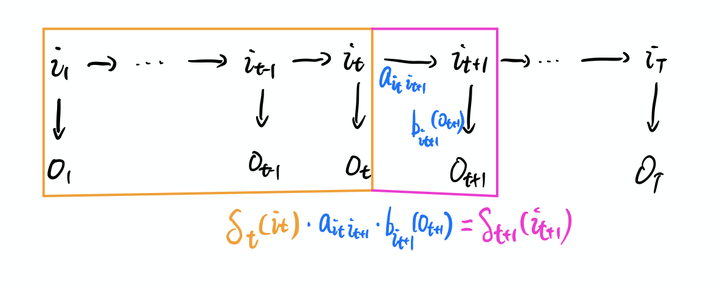 i₁ → ⋯ → iₜ₋₁ → iₜ → iₜ₊₁ → ⋯ → i_T
a_{iₜ iₜ₊₁}
b_{iₜ₊₁}(oₜ₊₁)
o₁ oₜ₋₁ oₜ oₜ₊₁ o_T
δₜ(iₜ) · a_{iₜ iₜ₊₁} · b_{iₜ₊₁}(oₜ₊₁) = δₜ₊₁(iₜ₊₁)